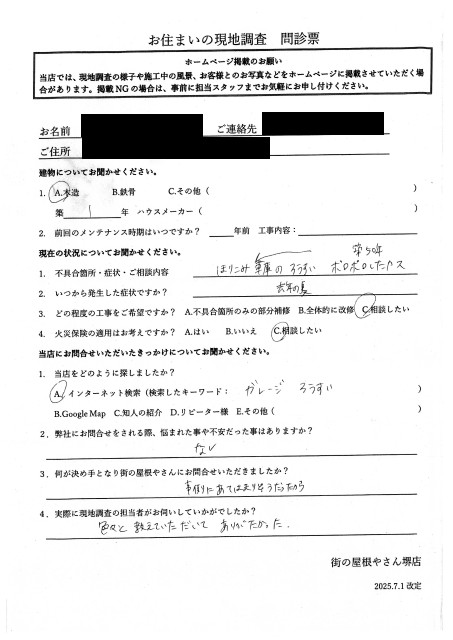 お住まいの現地調査 問診票
ホームページ掲載のお願い
当店では、現地調査の様子や施工中の風景、お客様とのお写真などをホームページに掲載させていただく場
合があります。掲載NGの場合は、事前に担当スタッフまでお気軽にお申し付けください。
お名前 ご連絡先
ご住所
建物についてお聞かせください。
1. A.木造 B.鉄骨 C.その他( )
第 1 年 ハウスメーカー( )
2. 前回のメンテナンス時期はいつですか? 年前 工事内容:
現在の状況についてお聞かせください。
築50年
1. 不具合箇所・症状・ご相談内容 ほりこみ 車庫の ろうすい ボロボロした
2. いつから発生した症状ですか? 去年の夏
3. どの程度の工事をご希望ですか? A.不具合箇所のみの部分補修 B.全体的に改修 C.相談したい
4. 火災保険の適用はお考えですか? A.はい B.いいえ C.相談したい
当店にお問合せいただいたきっかけについてお聞かせください。
1. 当店をどのように探しましたか?
A.インターネット検索(検索したキーワード: ガレージ ろうすい )
B.Google Map C.知人の紹介 D.リピーター様 E.その他( )
2.弊社にお問合せをされる際、悩まれた事や不安だった事はありますか?
ない
3.何が決め手となり街の屋根やさんにお問合せいただきましたか?
事例にあてはまりそうだったから
4.実際に現地調査の担当者がお伺いしていかがでしたか?
色々と 教えていただいて ありがたかった.
街の屋根やさん堺店
2025.7.1 改定